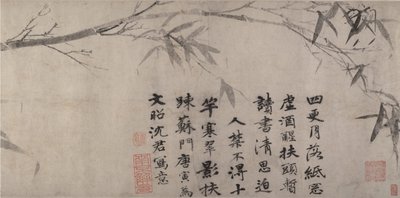 四更月落紙窓
虚酒醒扶頭暫
讀書清思迫
人禁不得十
竿寒翠影扶
踈蘇門唐寅為
文昭沈君寫意